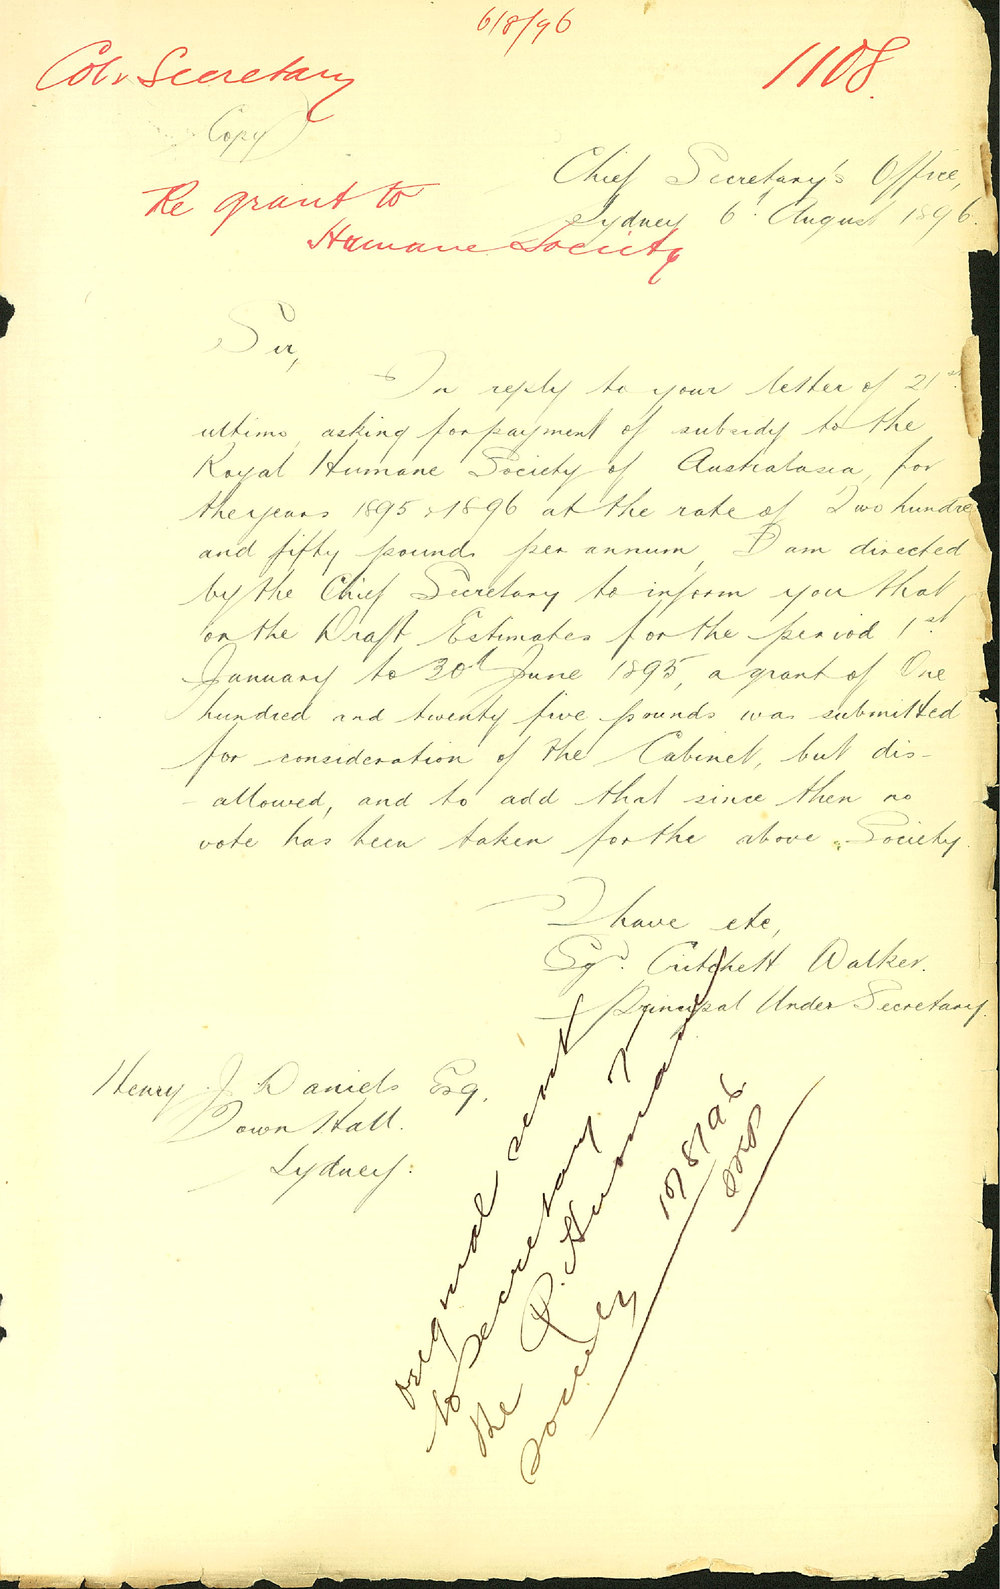 6/8/96
Col. Secretary
1108.
Copy
Re grant to
Humane Society
Chief Secretary's Office,
Sydney 6th August 1896.
Sir,
In reply to your letter of 21st
ultimo, asking for payment of subsidy to the
Royal Humane Society of Australasia, for
the years 1895 & 1896 at the rate of Two hundred
and fifty pounds per annum, I am directed
by the Chief Secretary to inform you that,
on the Draft Estimates for the period 1st
January to 30th June 1895, a grant of One
hundred and twenty five pounds was submitted
for consideration of the Cabinet, but dis-
-allowed, and to add that since then no
vote has been taken for the above Society.
I have etc,
Sgd. Critchett Walker.
Principal Under Secretary.
Henry J Daniels Esq.
Town Hall.
Sydney.
original sent
to Secretary
the R. Humane
Society
10/8/96